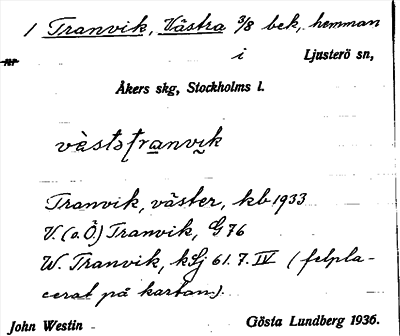 1 Tranvik, Västra 3/8 bek, hemman
i Ljusterö sn,
Åkers skg, Stockholms l.
Tranvik, väster, kb 1933
V. (o. Ö) Tranvik, G 76
W. Tranvik, kLj 61. 7. IV (felpla-
cerat på kartan).
John Westin Gösta Lundberg 1936.